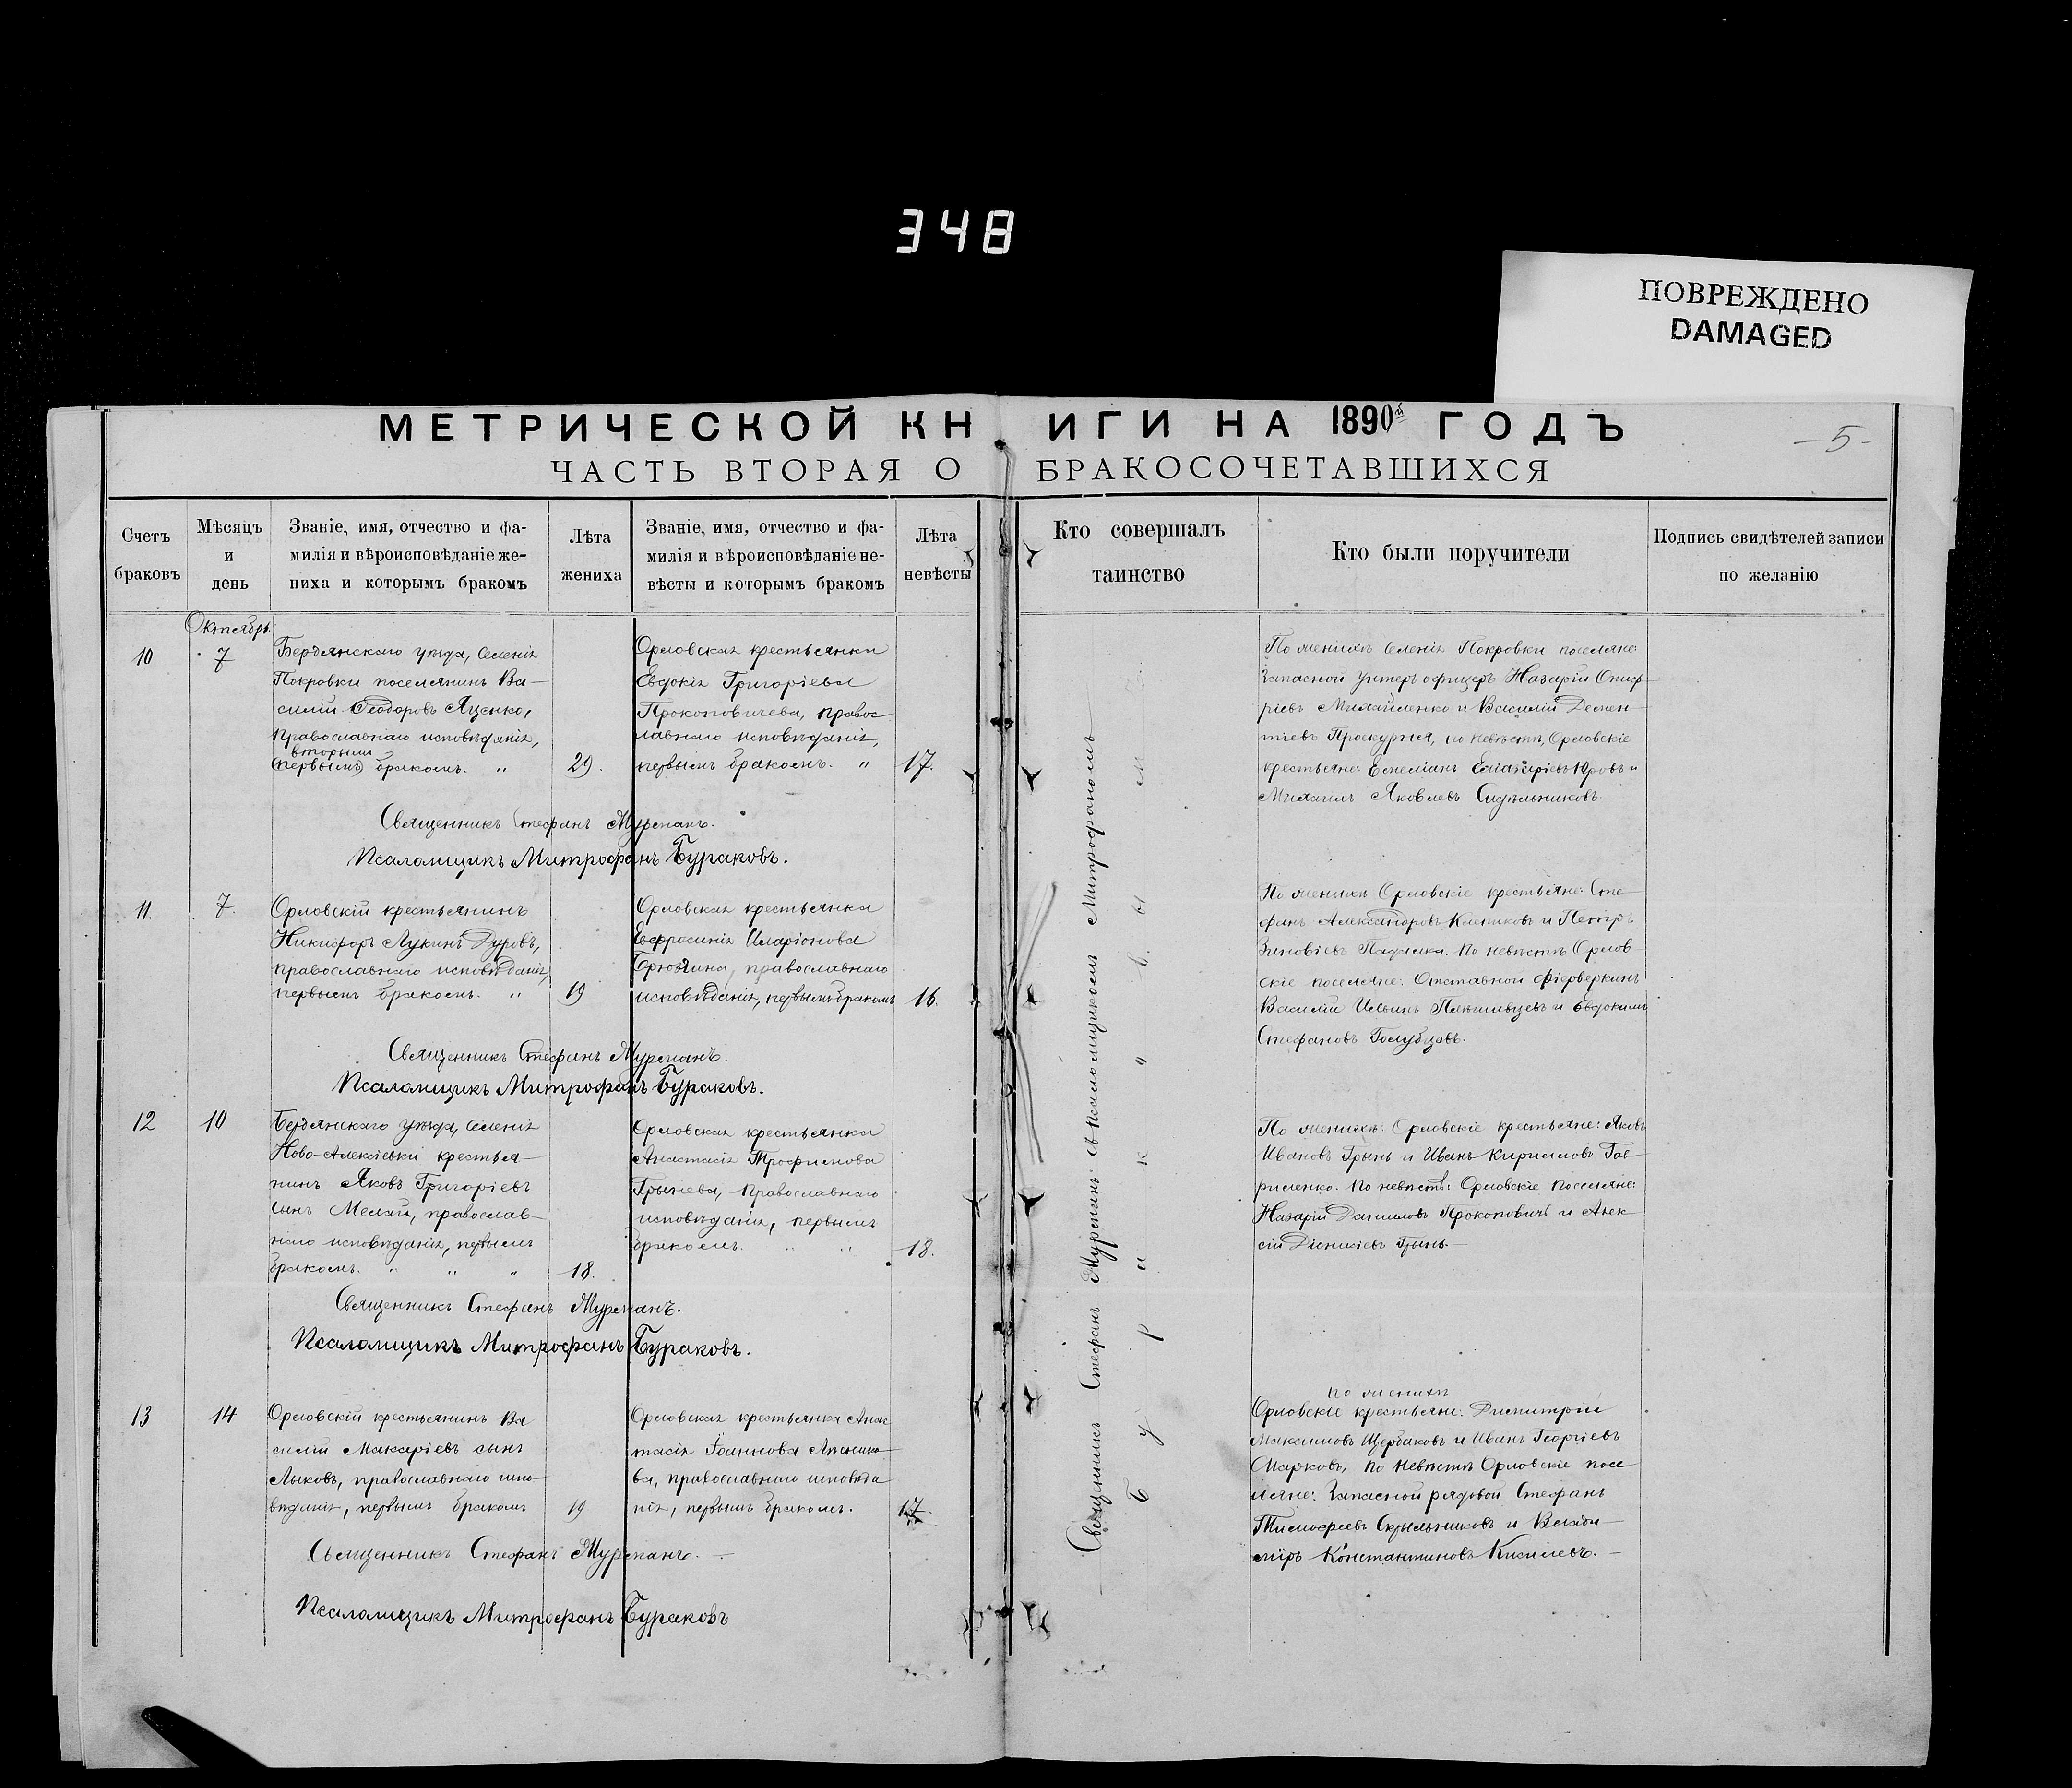 348
ПОВРЕЖДЕНО
DAMAGED
МЕТРИЧЕСКОЙ КНИГИ НА 1890й ГОДЪ
-5-
ЧАСТЬ ВТОРАЯ О БРАКОСОЧЕТАВШИХСЯ
Счетъ браковъ
Мѣсяцъ и день
Званіе, имя, отчество и фа-
милія и вѣроисповѣданіе же-
ниха и которымъ бракомъ
Лѣта жениха
Званіе, имя, отчество и фа-
милія и вѣроисповѣданіе не-
вѣсты и которымъ бракомъ
Лѣта невѣсты
Кто совершалъ
таинство
Кто были поручители
Подпись свидѣтелей записи
по желанію
Октябрь
10
7
Бердянскаго уѣзда, селенія
Покровки поселянинъ Ва-
силій Ѳеодоровъ Яценко,
православнаго исповѣданія,
вторымъ
(первымъ) бракомъ. "
29.
Орловская крестьянка
Евдокія Григоріева
Прокоповичева, правос-
лавнаго исповѣданія,
первымъ бракомъ. "
17.
По женихѣ селенія Покровки поселяне:
Запасной унтеръ офицеръ Назарій
Михайленко и Василій Демен-
тіевъ Проскурня, по невѣстѣ, Орловскіе
крестьяне: и
Михаилъ Яковлевъ Сидѣльниковъ.
Священникъ Стефанъ Мурспанъ.
Псаломщикъ Митрофанъ Бураковъ.
11.
7.
Орловскій крестьянинъ
Никифоръ Лукинъ Дуровъ,
православнаго исповѣданія,
первымъ бракомъ. "
19
Орловская крестьянка
Евфросинія Иларіонова
Брюзгина, православнаго
исповѣданія, первымъ бракомъ
16.
По женихѣ Орловскіе крестьяне: Сте-
фанъ Александровъ и Петръ
Зиновіевъ По невѣстѣ Орлов-
скіе поселяне: Отставной фіерверкинъ
Василій Ильинъ и Евдокимъ
Стефановъ Голубцовъ.
Священникъ Стефанъ Мурспанъ.
Псаломщикъ Митрофанъ Бураковъ.
12
10
Бердянскаго уѣзда, селенія
Ново-Алексіевки крестья-
нинъ Яковъ Григоріевъ
сынъ Меляй, православ-
наго исповѣданія, первымъ
бракомъ. " " "
18.
Орловская крестьянка
Анастасія Трофимова
Грынева, православнаго
исповѣданія, первымъ
бракомъ. " "
18.
По женихѣ: Орловскіе крестьяне: Яковъ
Ивановъ Грынь и Иванъ Кирилловъ Гав-
риленко. По невѣстѣ: Орловскіе поселяне:
Назарій Данииловъ Прокоповичъ и Алек-
сій Діонисіевъ Грынь.—
Священникъ Стефанъ Мурспанъ.
Псаломщикъ Митрофанъ Бураковъ.
13
14
Орловскій крестьянинъ Ва
силій Макаріевъ сынъ
Лыковъ, православнаго испо
вѣданія, первымъ бракомъ
19
Орловская крестьянка Анас
тасія Іоаннова
ва, православнаго исповѣда
нія, первымъ бракомъ.
17
по женихѣ
Орловскіе крестьяне: Димитрій
Максимовъ Щербаковъ и Иванъ Георгіевъ
Марковъ, по невѣстѣ Орловскіе посе
ляне: Запасной рядовой Стефанъ
Тимофеевъ Скрыльниковъ и Влади-
міръ Константиновъ Киселевъ.—
Священникъ Стефанъ Мурспанъ.—
Псаломщикъ Митрофанъ Бураковъ
Священникъ Стефанъ Мурспанъ съ Псаломщикомъ Митрофаномъ
Бураковымъ